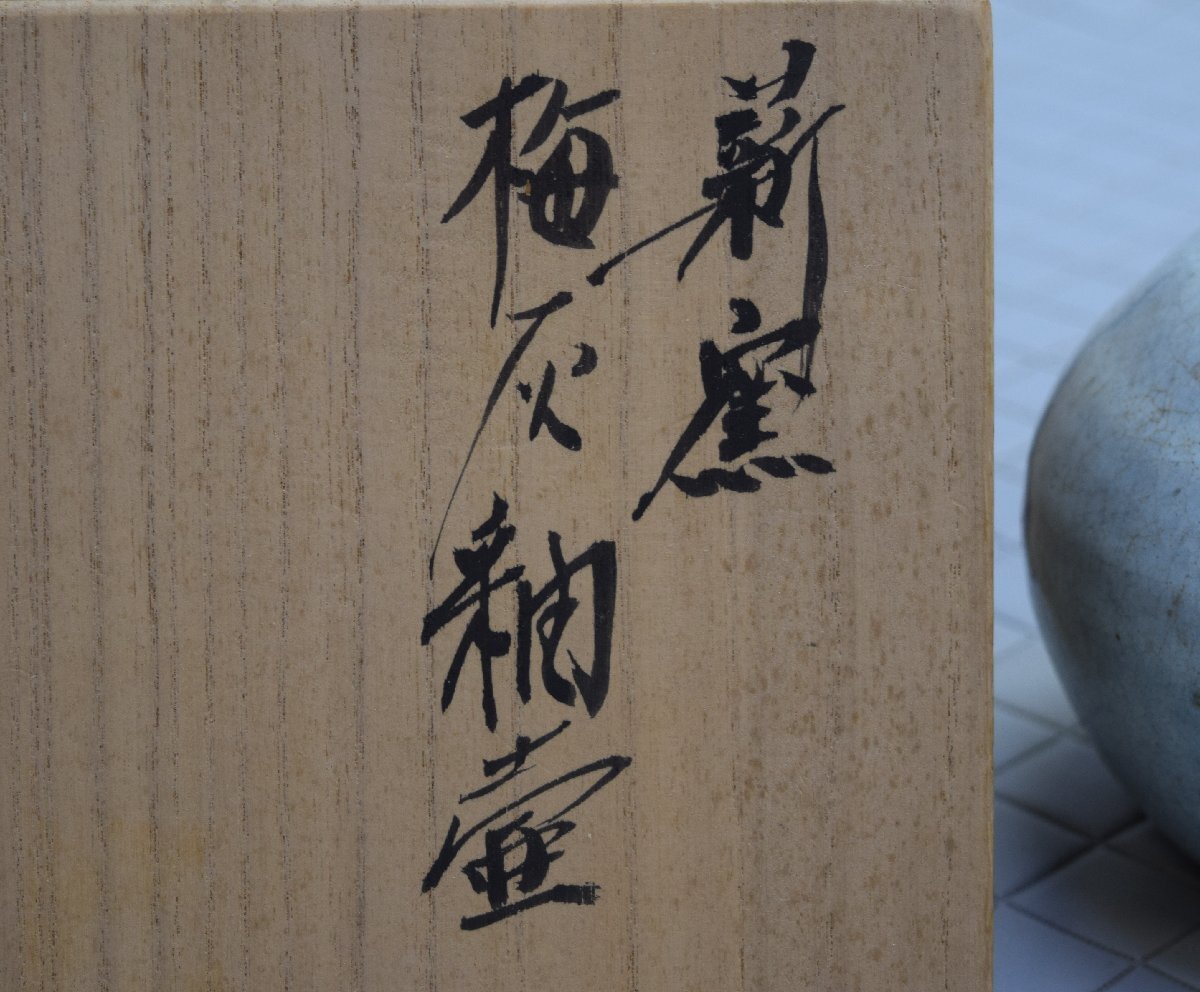 薪窯
梅灰釉壷